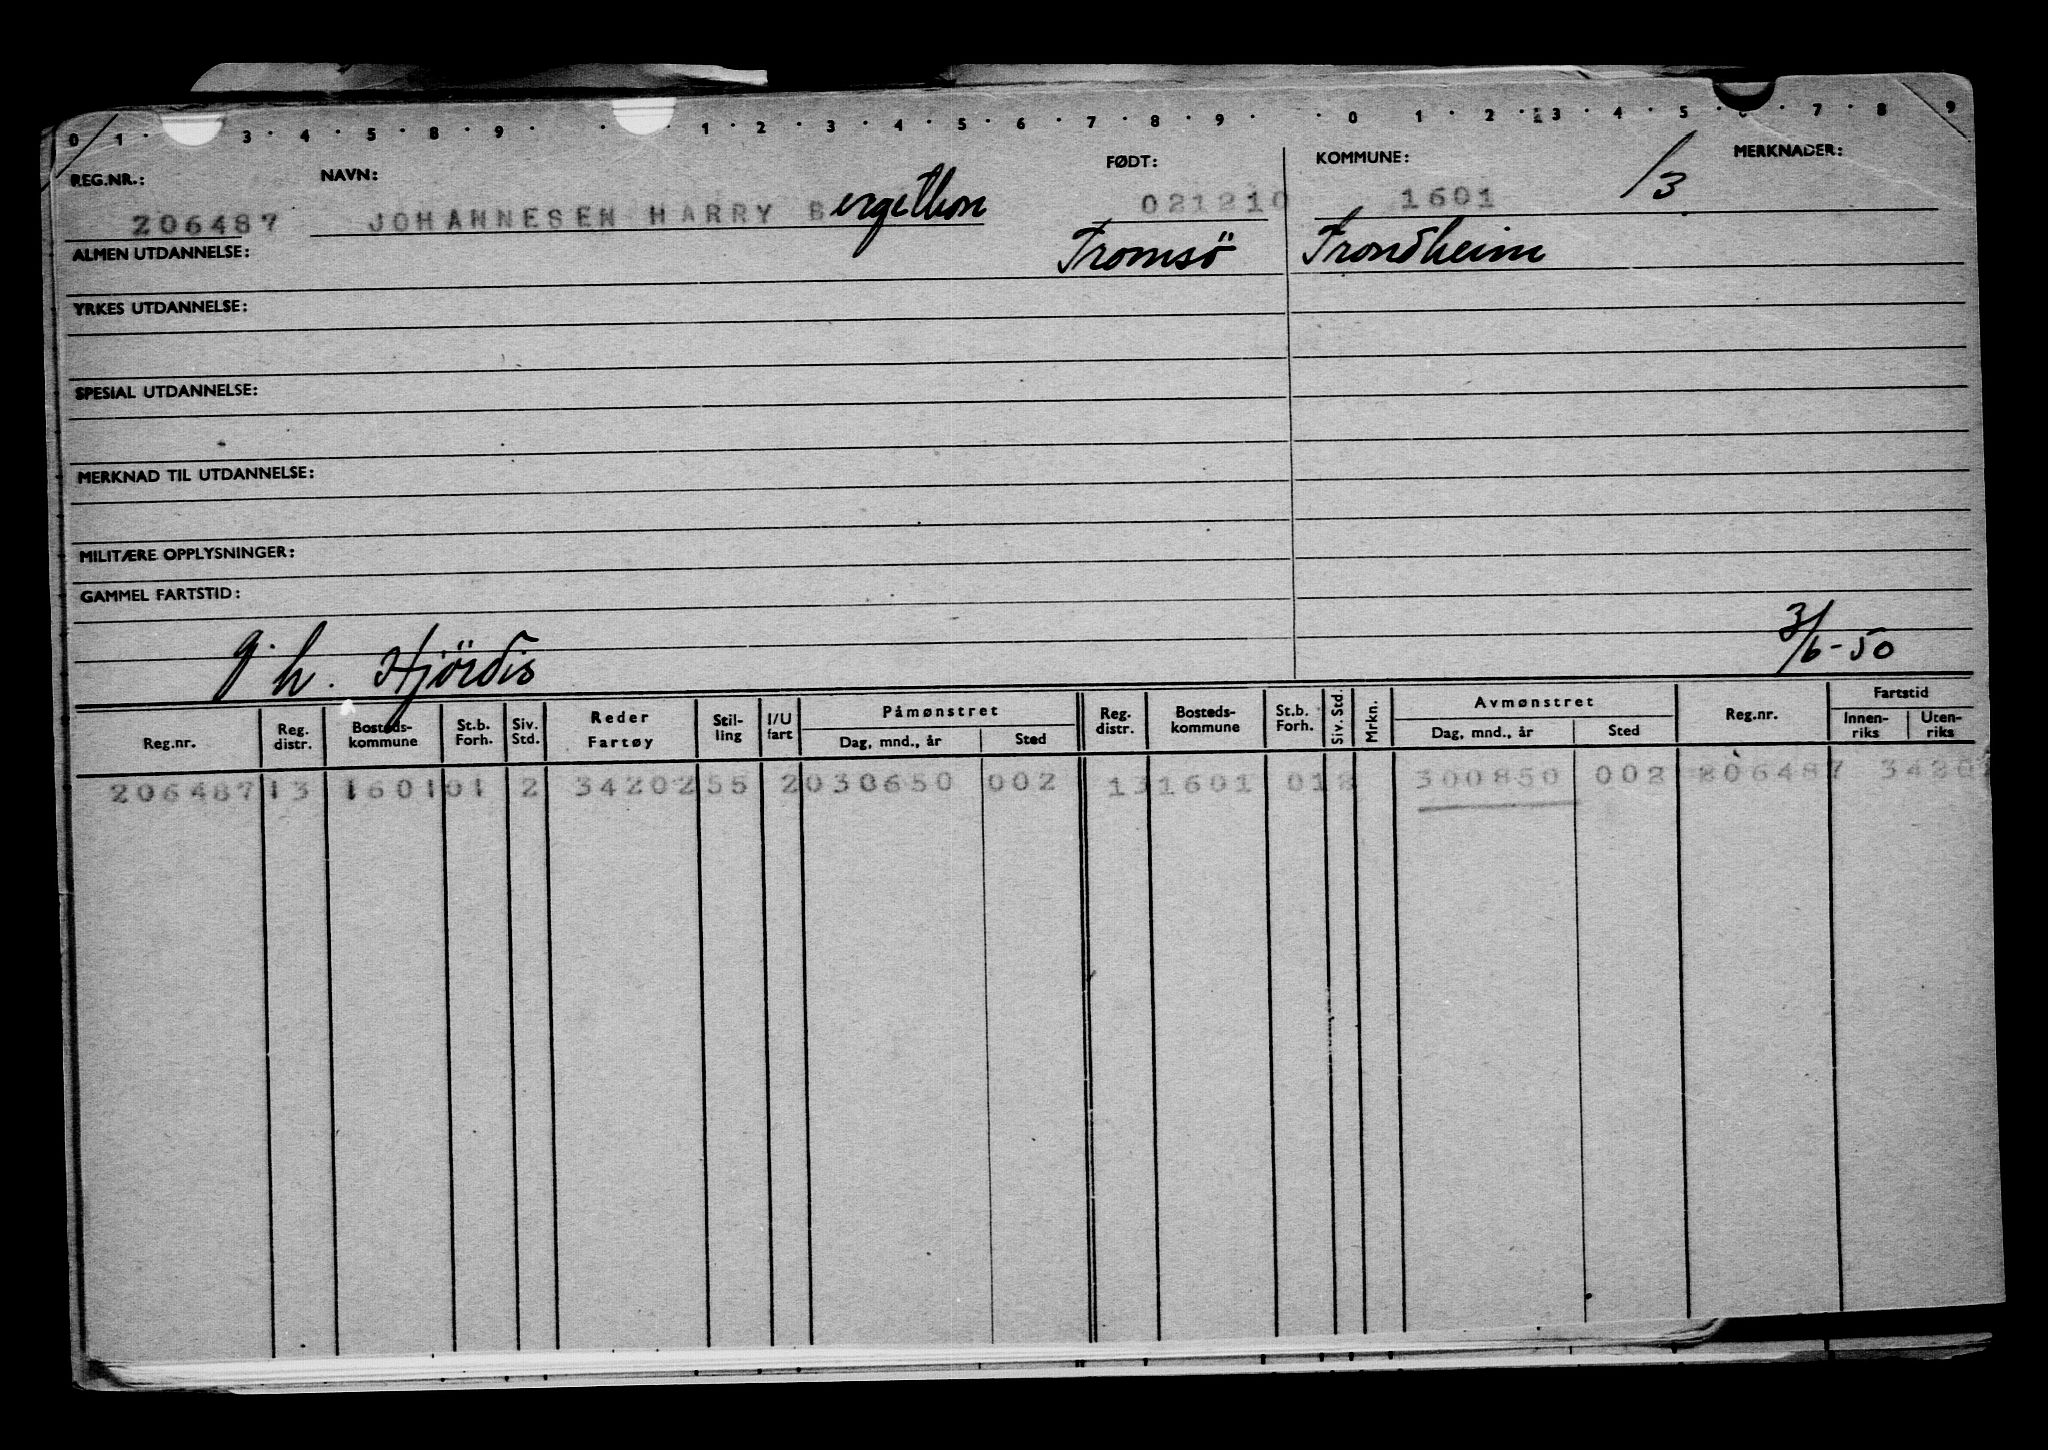 0 1 · 3 · 4 · 5 · 8 · 9 · · · 1 · 2 · 3 · 4 · 5 · 6 · 7 · 8 · 9 · · 0 · 1 · 2 · 3 · 4 · 5 · 6 · 7 · 8 · 9
REG.NR.: NAVN: FØDT: KOMMUNE: MERKNADER:
206487 JOHANNESEN HARRY Bergethon 021210 1601 /3
ALMEN UTDANNELSE: Tromsö Trondheim
YRKES UTDANNELSE:
SPESIAL UTDANNELSE:
MERKNAD TIL UTDANNELSE:
MILITÆRE OPPLYSNINGER:
GAMMEL FARTSTID:
g. h. Hjördis 3/6-50
Reg.nr. Reg. distr. Bosteds-kommune St.b. Forh. Siv. Std. Reder Fartøy Stil-ling I/U fart Påmønstret Dag, mnd., år Sted Reg. distr. Bosteds-kommune St.b. Forh. Siv. Std. Mrkn. Avmønstret Dag, mnd., år Sted Reg.nr. Fartstid Innen-riks Uten-riks
206487 13 1601 01 2 34202 55 2 030650 002 13 1601 01 2 300850 002 206487 34202